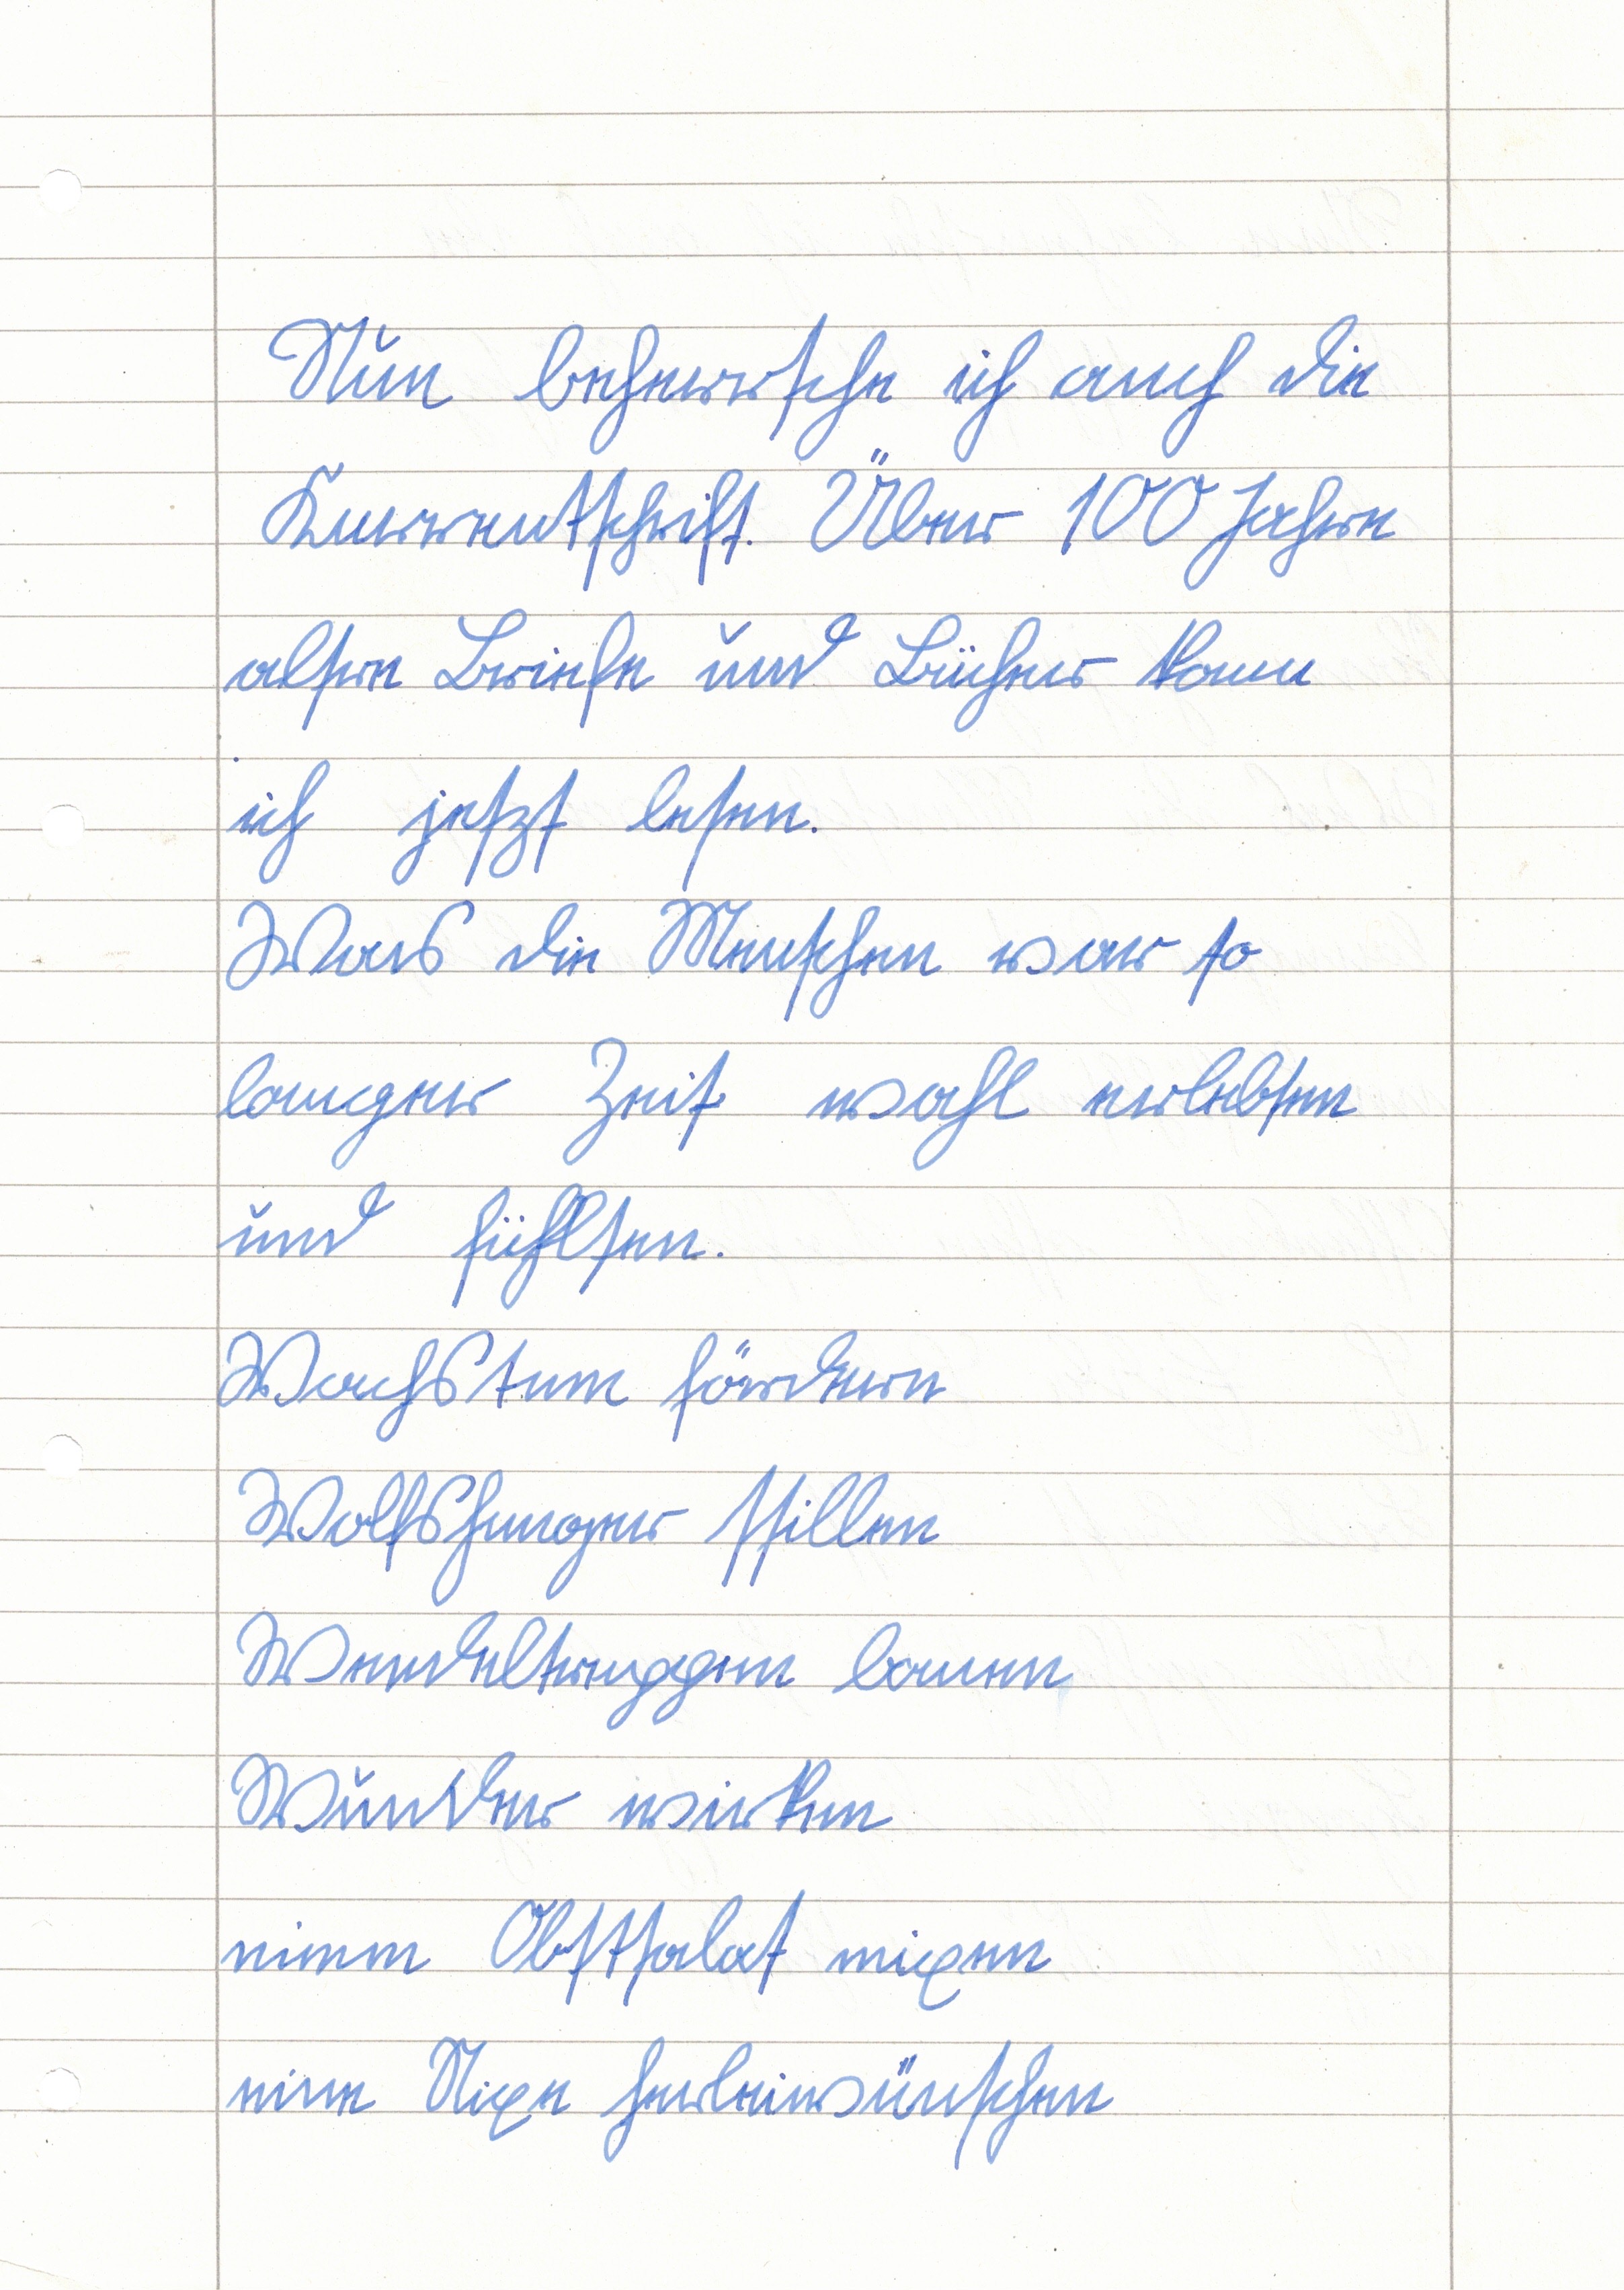 Nun beherrsche ich auch die
Kurrentschrift. Über 100 Jahre
alte Briefe und Bücher kann
ich jetzt lesen.
Was die Menschen vor so
langer Zeit wohl erlebten
und fühlten.
Wachstum fördern
Wolfshunger stillen
Wendeltreppen bauen
Wunder wirken
einen Obstsalat mixen
eine Nixe herbeiwünschen